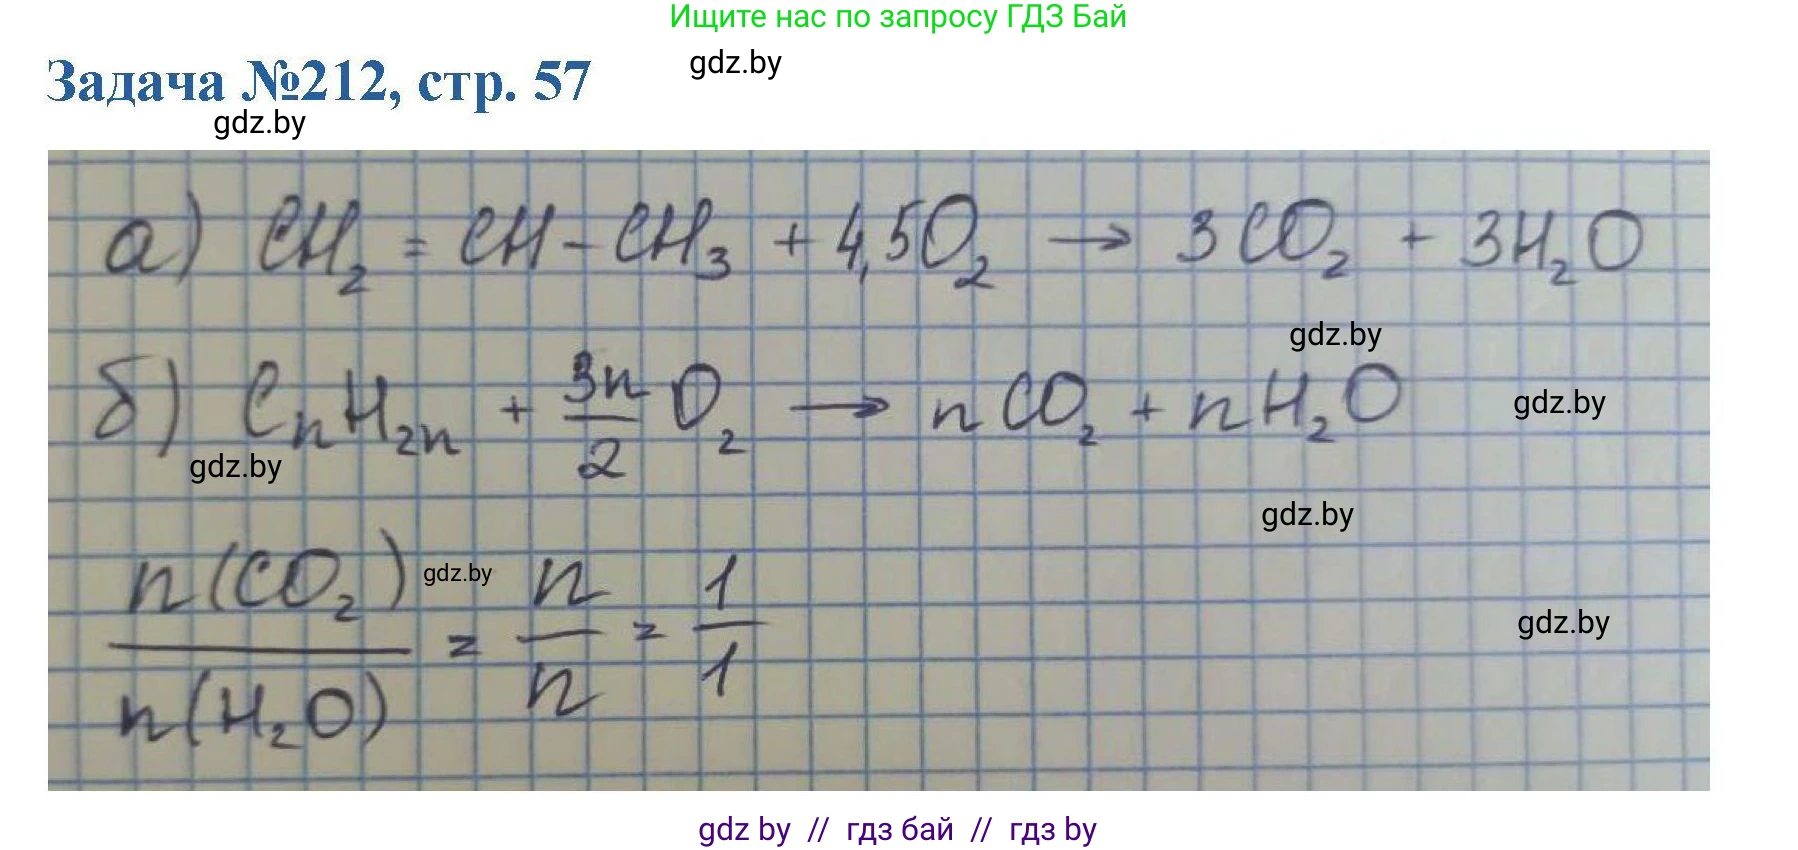 Ищите нас по запросу ГДЗ Бай
gdz.by
Задача №212, стр. 57
gdz.by
а) CH₂ = CH - CH₃ + 4,5O₂ → 3CO₂ + 3H₂O
gdz.by
б) CₙH₂ₙ + 3n/2 O₂ → nCO₂ + nH₂O
gdz.by
gdz.by
gdz.by
n(CO₂)/n(H₂O) = n/n = 1/1
gdz.by
gdz.by
gdz by // гдз бай // гдз by